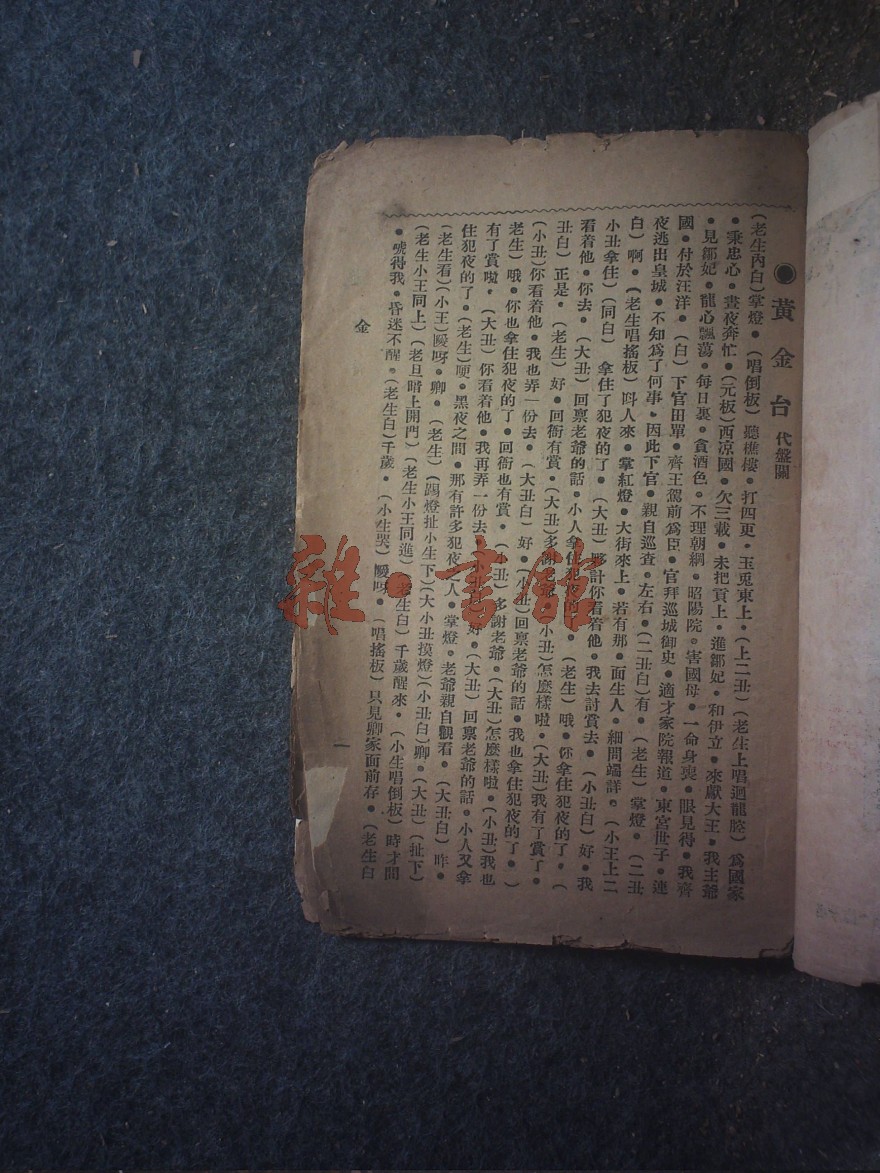 ●黃金台 代盤關
(老生內白)掌燈●(唱倒板)聽樵樓●打四更●玉兎東上●(上二丑)(老生上唱迴龍腔)爲國家
●秉忠心●晝夜奔忙●(元板)西凉國●欠三載●未把貢上●進鄒妃●和伊立●來獻大王●我主爺
●見鄒妃●龍心飄蕩●每日裏●貪酒色●不理朝綱●昭陽院●害國母●一命身喪●眼見得●我齊
國●付於汪洋●(白)下官田單●齊王駕前爲臣●官拜巡城御史●適才家院報道●東宮世子●連
夜逃出皇城●不知爲了何事●因此下官●親自巡查●左右●(二丑白)有●(老生)掌燈●(二丑
白)啊●(老生唱搖板)呌人來●掌紅燈●大街來上●若有那●面生人●細問端詳●(小王上二
小丑拿住)(同白)拿住了犯夜的了●(大丑)夥計你看着他●我去討賞去●(小丑白)好●我
看着他●你去●(大丑)回禀老爺的話●小人拿住犯夜的了●(老生)哦●你拿住犯夜的了●(
丑白)正是●(老生)好●回衙有賞●(大丑)多謝老爺●(小丑)怎麼樣啦●(大丑)我有了賞了●
(小丑)你看着他●我也弄一份去●(大丑白)好●(小丑)回禀老爺的話●我也拿住犯夜的了●(
老生)哦●你也拿住犯夜的了●回衙也有賞●(小丑)多謝老爺●(大丑)怎麼樣啦●(小丑)我也
有了賞啦●(大丑)你看着他●我再弄一份去●(小丑)好●(大丑)回禀老爺的話●小人又拿
住犯夜的了●(老生)哽●黑夜之間●那有許多犯夜之人●掌燈●老爺親自觀看●(大丑白)咋●
(老生看)(小王)嗳呀●卿●(老生)(踢燈扯小生下)(大小丑摸燈)(小丑白)卿●(大丑)(扯下)
(老生小王同上)(老旦暗上開門)(老生小王同進)(老生白)千歲醒來●(小生唱倒板)時才間
●唬得我●昏迷不醒●(老生白)千歲●(小生哭)嗳呀●(唱搖板)只見卿家面前存●(老生白
金
一
雜·書館